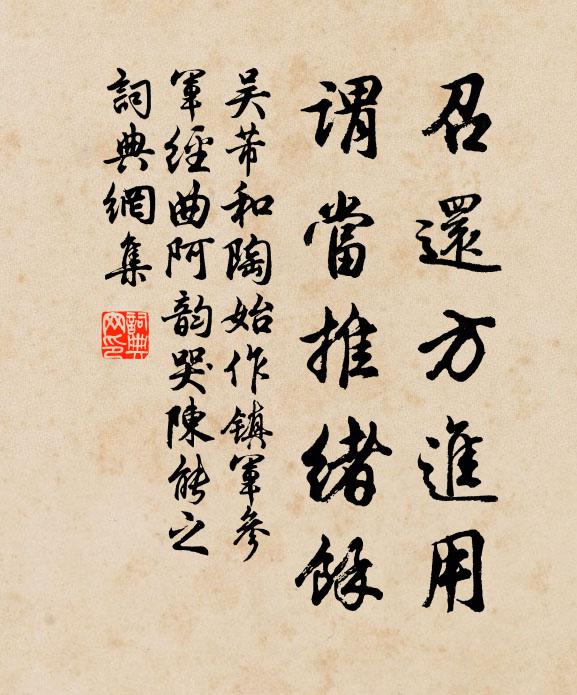 召還方進用
謂當推緒餘
吴芾和陶始作鎮軍參
軍經曲阿韵哭陳能之
詞典網集
詞典
网印